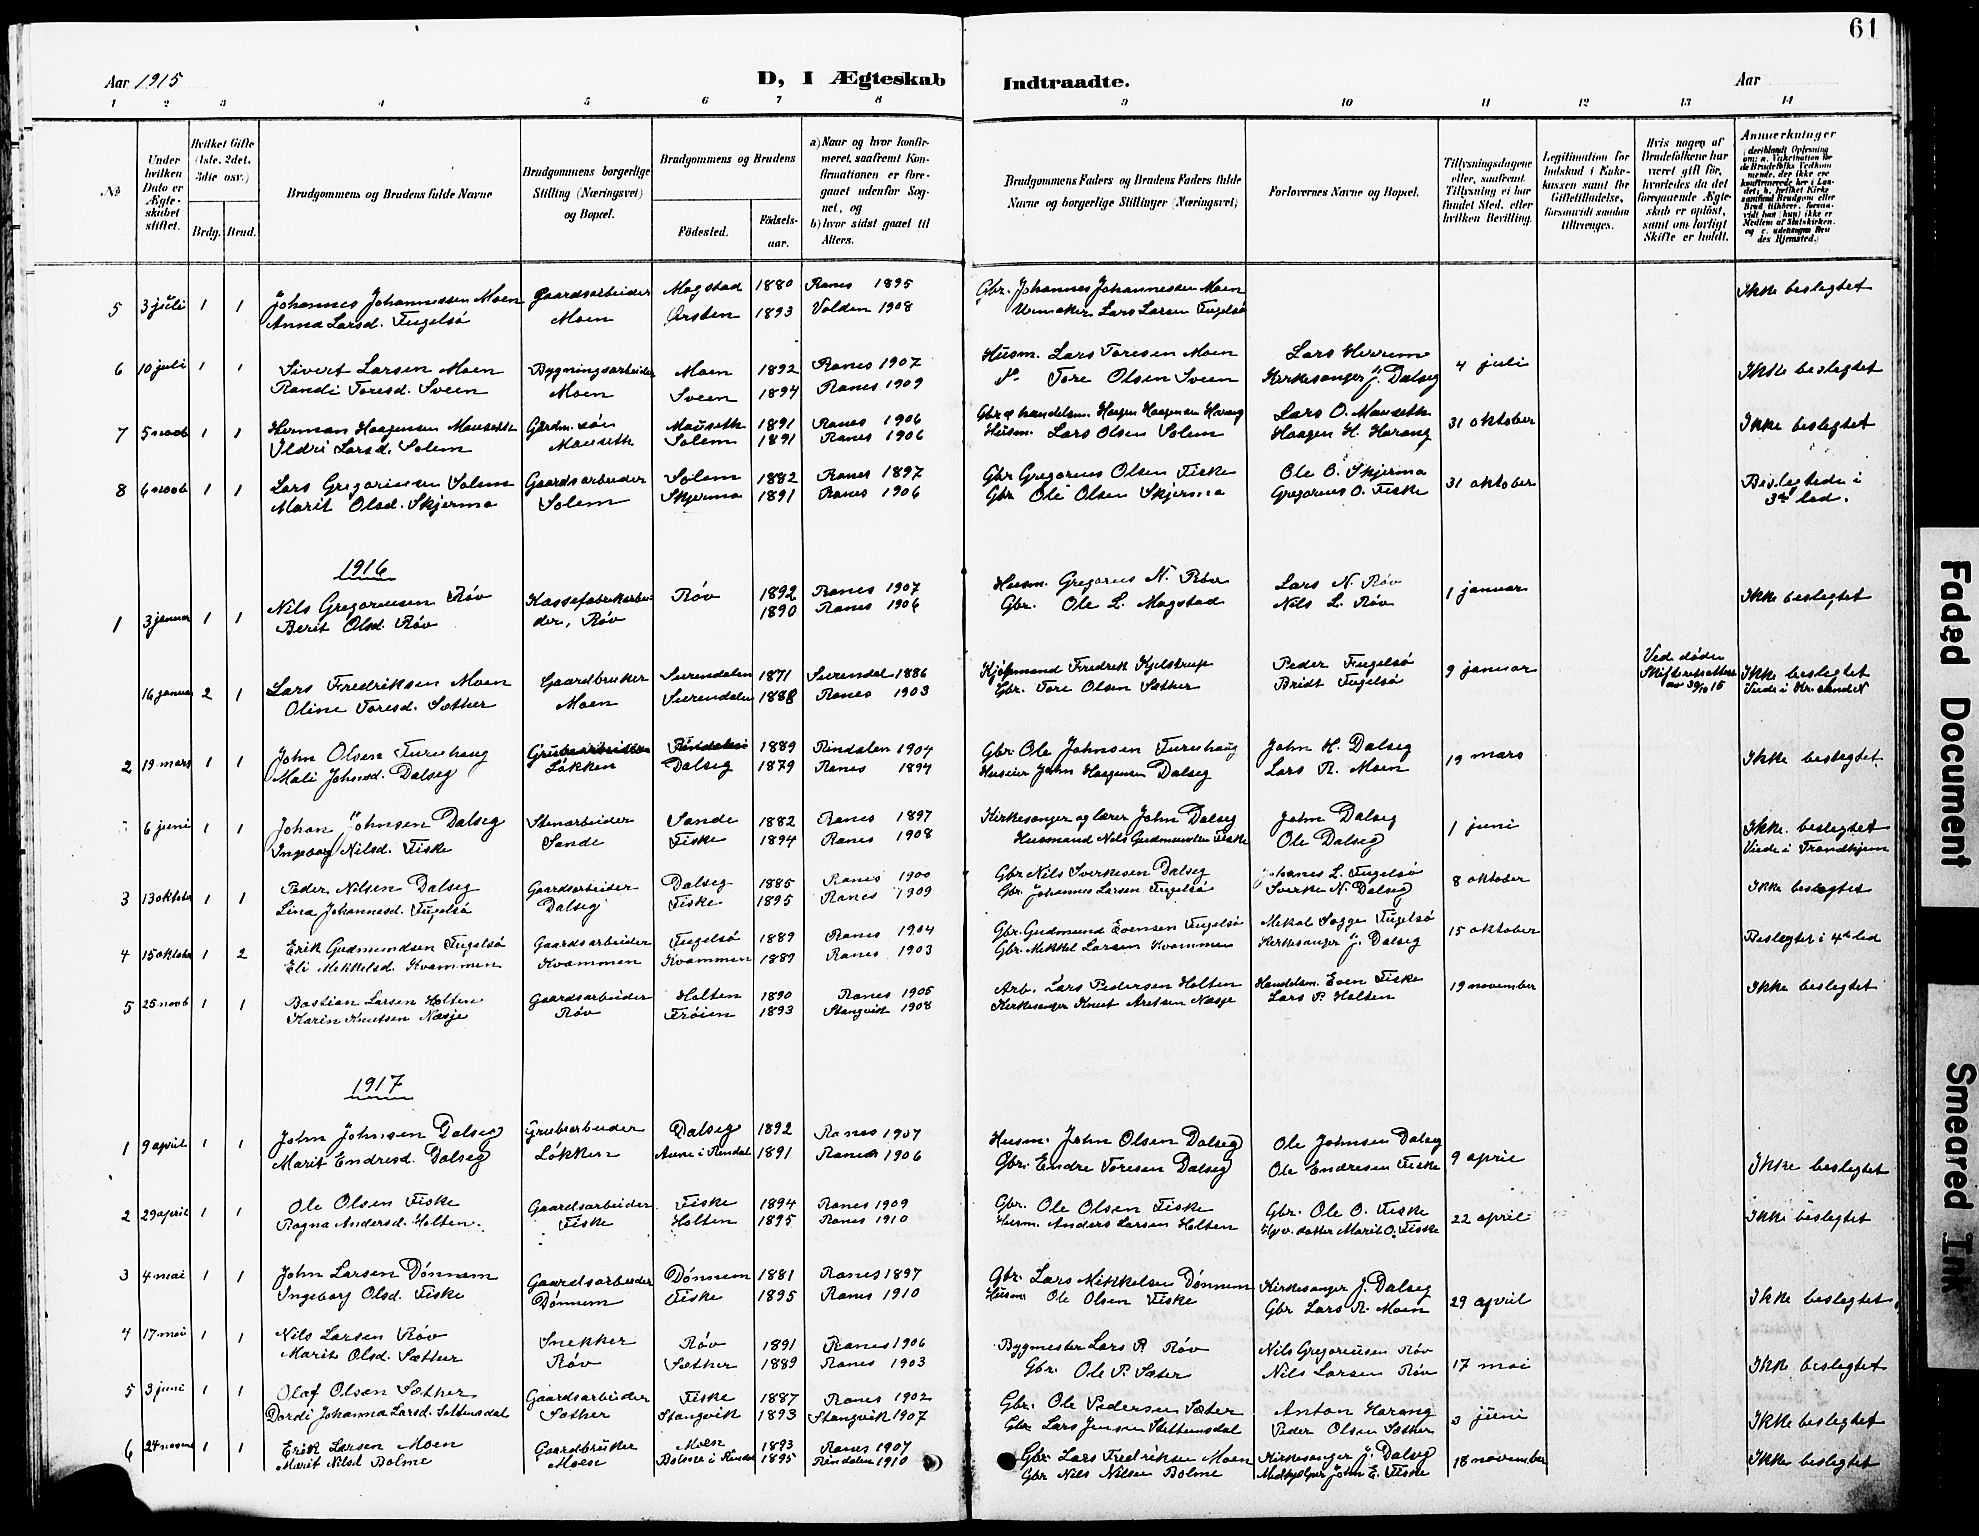 61
Aar 1915
D, I Ægteskab Indtraadte.
Aar
1 2 3 4 5 6 7 8 9 10 11 12 13 14
No
Under hvilken Dato er Ægteskabet stiftet.
Hvilket Gifte (1ste, 2det, 3die osv.)
Brdg. Brud.
Brudgommens og Brudens fulde Navne
Brudgommens borgerlige Stilling (Næringsvei) og Bopæl.
Brudgommens og Brudens
Fødested.
Fødselsaar.
a) Naar og hvor konfirmeret, saafremt Konfirmationen er foregaaet udenfor Sognet, og
b) hvor sidst gaaet til Alters.
Brudgommens Faders og Brudens Faders fulde Navne og borgerlige Stillinger (Næringsvei)
Forlovernes Navne og Bopæl.
Tillysningsdagene eller, saafremt Tillysning ei har fundet Sted, eller hvilken Bevilling.
Legitimation for Indskud i Enkekassen samt for Giftetilladelse, forsaavidt saadan tiltrænges.
Hvis nogen af Brudefolkene har været gift før, hvorledes da det foregaaende Ægteskab er opløst, samt om lovligt Skifte er holdt.
Anmærkninger
5 3 juli 1 1 Johannes Johannessen Moen Gaardsarbeider Mogstad 1880 Ranes 1895 Gbr. Johannes Johannessen Moen Ikke beslegtet
Anna Larsd. Fugelsö Moen Ørsten 1893 Volden 1908 Urmaker Lars Larsen Fugelsö
6 10 juli 1 1 Sivert Larsen Moen Bygningsarbeider Moen 1892 Ranes 1907 Husm. Lars Toresen Moen Lars Herrem 4 juli Ikke beslegtet
Randi Toresd. Sveen Moen Sveen 1894 Ranes 1909 Tore Olsen Sveen Kirkesanger J. Dalseg
7 5 novb 1 1 Herman Haagensen Mauseth Gårdm. søn Mauseth 1891 Ranes 1906 Gbr. & handelsm. Haagen Haagensen Harang Lars O. Mauseth 31 oktober Ikke beslegtet
Ildri Larsd. Solem Mauseth Solem 1891 Ranes 1906 Husm. Lars Olsen Solem Haagen H. Harang
8 6 novb 1 1 Lars Gregoriusen Solem Gaardsarbeider Solem 1882 Ranes 1897 Gbr Gregorius Olsen Fiske Ole O. Skjermo 31 oktober Beslegtede i
Marit Olsd. Skjermo Solem Skjermo 1891 Ranes 1906 Gbr Ole Olsen Skjermo Gregorius O. Fiske 3die led.
1916
1 3 januar 1 1 Nils Gregoriusen Røv Kassefabrikarbei- Røv 1892 Ranes 1907 Husm. Gregorius N. Røv Lars N. Røv 1 januar Ikke beslegtet
Berit Olsd. Røv der, Røv 1890 Ranes 1906 Gbr. Ole L. Mogstad Nils L. Røv
16 januar 2 1 Lars Fredriksen Moen Gaardbruker Surendalen 1871 Surendal 1886 Kjøpmand Fredrik Kjelstrup Peder Fugelsö 9 januar Ved døden Skifteretsattest av 30/10 15 Ikke beslegtet
Oline Toresd. Sæther Moen Surendalen 1888 Ranes 1903 Gbr. Tore Olsen Sæther Bridt Fugelsö Viede i Kr.sund N
2 19 mars 1 1 John Olsen Furuhaug Grubearbeider Rindalen 1889 Rindalen 1904 Gbr. Ole Johnsen Furuhaug John H. Dalseg 19 mars Ikke beslegtet
Mali Johnsd. Dalseg Løkken Dalseg 1879 Ranes 1894 Huseier John Haagensen Dalseg Lars R. Moen
6 juni 1 1 Johan Johnsen Dalseg Stenarbeider Sande 1882 Ranes 1897 Kirkesanger og lærer John Dalseg John Dalseg 1 juni Ikke beslegtet
Ingeborg Nilsd. Fiske Sande Fiske 1894 Ranes 1908 Husmand Nils Gudmundsen Fiske Ole Dalseg Viede i Trondhjem
3 13 oktober 1 1 Peder Nilsen Dalseg Gaardsarbeider Dalseg 1885 Ranes 1900 Gbr Nils Sverkesen Dalseg Johanes L. Fugelsö 8 oktober Ikke beslegtet
Lina Johannesd. Fugelsö Dalseg Fiske 1895 Ranes 1909 Gbr. Johannes Larsen Fugelsö Sverke N. Dalseg
4 15 oktober 1 2 Erik Gudmundsen Fugelsö Gaardsarbeider Fugelsö 1889 Ranes 1904 Gbr. Gudmund Evensen Fugelsö Mikal Sogge Fugelsö 15 oktober Beslegtet i 4de led
Eli Mikkelsd. Kvammen Kvammen Kvammen 1889 Ranes 1903 Gbr. Mikkel Larsen Kvammen Kirkesanger J. Dalseg
5 25 novb 1 1 Bastian Larsen Holten Gaardsarbeider Holten 1890 Ranes 1905 Arb. Lars Pedersen Holten Handelsm. Even Fiske 19 november Ikke beslegtet
Karin Knutsen Næsje Røv Frøien 1893 Stangvik 1908 Kirkesanger Knut Aretsen Næsje Lars P. Holten
1917
1 9 april 1 1 John Johnsen Dalseg Grubearbeider Dalseg 1892 Ranes 1907 Husm. John Olsen Dalseg Ole Johnsen Dalseg 9 april Ikke beslegtet
Marit Endresd. Dalseg Løkken Aune i Rindal 1891 Ranes 1906 Gbr. Endre Toresen Dalseg Ole Endresen Fiske
2 29 april 1 1 Ole Olsen Fiske Gaardsarbeider Fiske 1894 Ranes 1909 Gbr. Ole Olsen Fiske Gbr. Ole O. Fiske 22 april Ikke beslegtet
Ragna Andersd. Holten. Fiske Holten 1895 Ranes 1910 Husm. Anders Larsen Holten datter Marit O. Fiske
3 4 mai 1 1 John Larsen Dönnem Gaardsarbeider Dönnem 1881 Ranes 1897 Gbr. Lars Mikkelsen Dönnem Kirkesanger J. Dalseg 29 april Ikke beslegtet
Ingeborg Olsd. Fiske Dönnem Fiske 1895 Ranes 1910 Husm. Ole Olsen Fiske Gbr Lars R. Moen
4 17 mai 1 1 Nils Larsen Røv Snekker Røv 1891 Ranes 1906 Bygmester Lars P. Røv Nils Gregoriusen Røv 17 mai Ikke beslegtet
Marit Olsd. Sæther Røv Sæther 1889 Ranes 1903 Gbr. Ole P. Sæter Nils Larsen Røv
5 3 juni 1 1 Olaf Olsen Sæther Gaardsarbeider Fiske 1887 Ranes 1902 Gbr. Ole Pedersen Sæter Anton Harang 3 juni Ikke beslegtet
Dordi Johanna Larsd. Settemsdal Sæther Stangvik 1893 Stangvik 1907 Gbr Lars Jensen Settemsdal Peder Olsen Sæther
6 24 novemb 1 1 Erik Larsen Moen Gaardbruker Moen 1893 Ranes 1907 Gbr Lars Fredriksen Moen Kirkesanger J. Dalseg 18 november Ikke beslegtet
Marit Nilsd Bolme Moen Bolme i Rindal 1895 Rindalen 1910 Gbr Nils Nilsen Bolme John E. Fiske
Faded Document
Smeared Ink